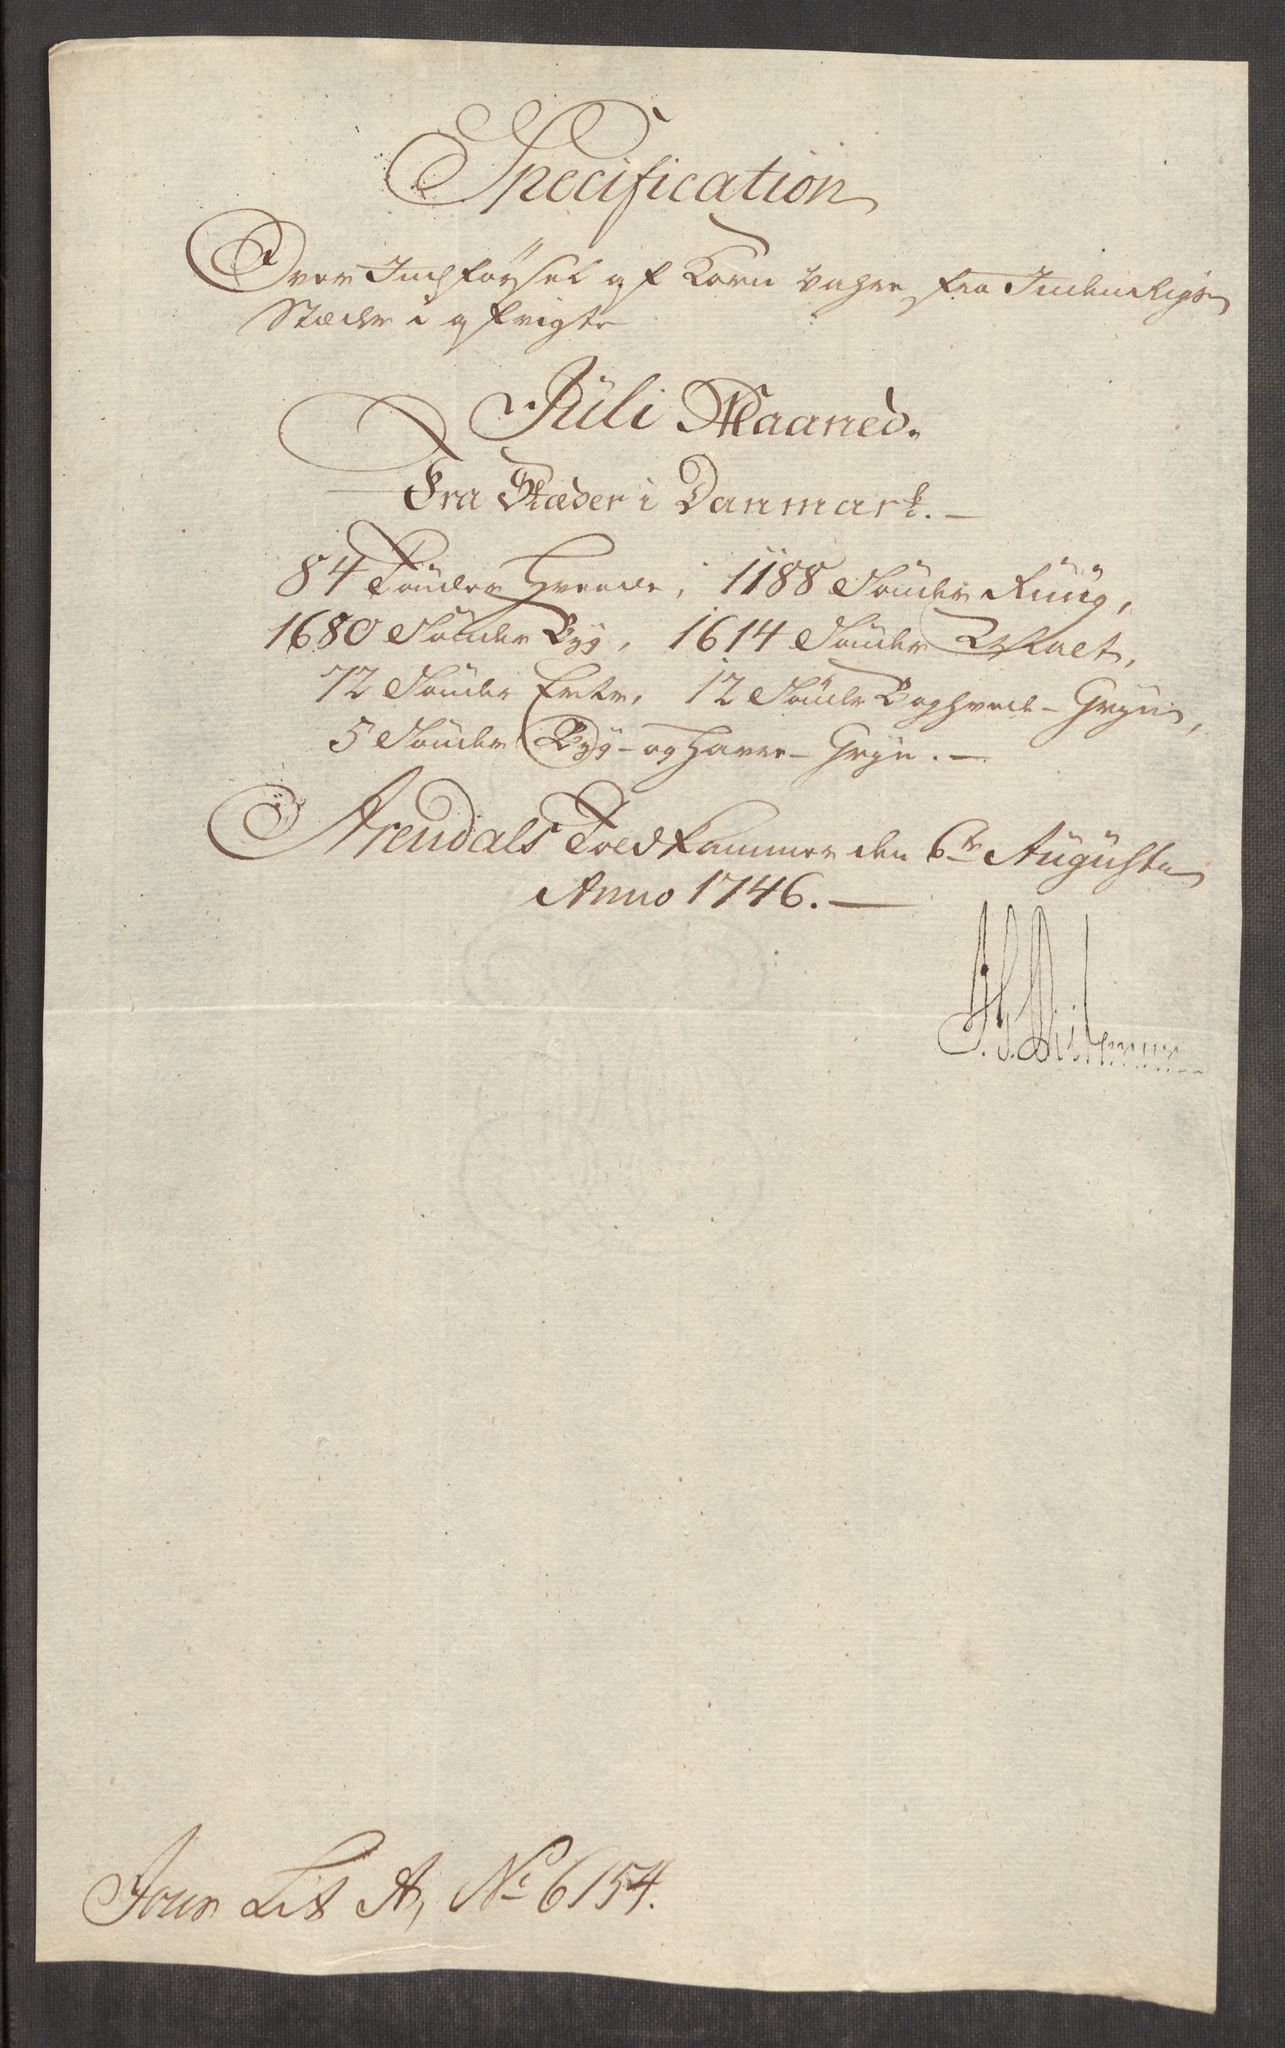 Specification
Over Indførsel af Korn Vahre, fra Indenrigske
Stæder i afvigte
Jüli Maaned.
Fra Stæder i Danmark. –
84 Tønder Hvede, 1188 Tønder Rüüg,
1680 Tønder Byg, 1614 Tønder Malt,
72 Tønder Erter, 12 Tønder Boghvede-Gryn,
5 Tønder Byg- og Havre-Gryn. –
Arendals Told Kammer den 6te Augüsti
Anno 1746. –
Jour Lit A, No 6154.